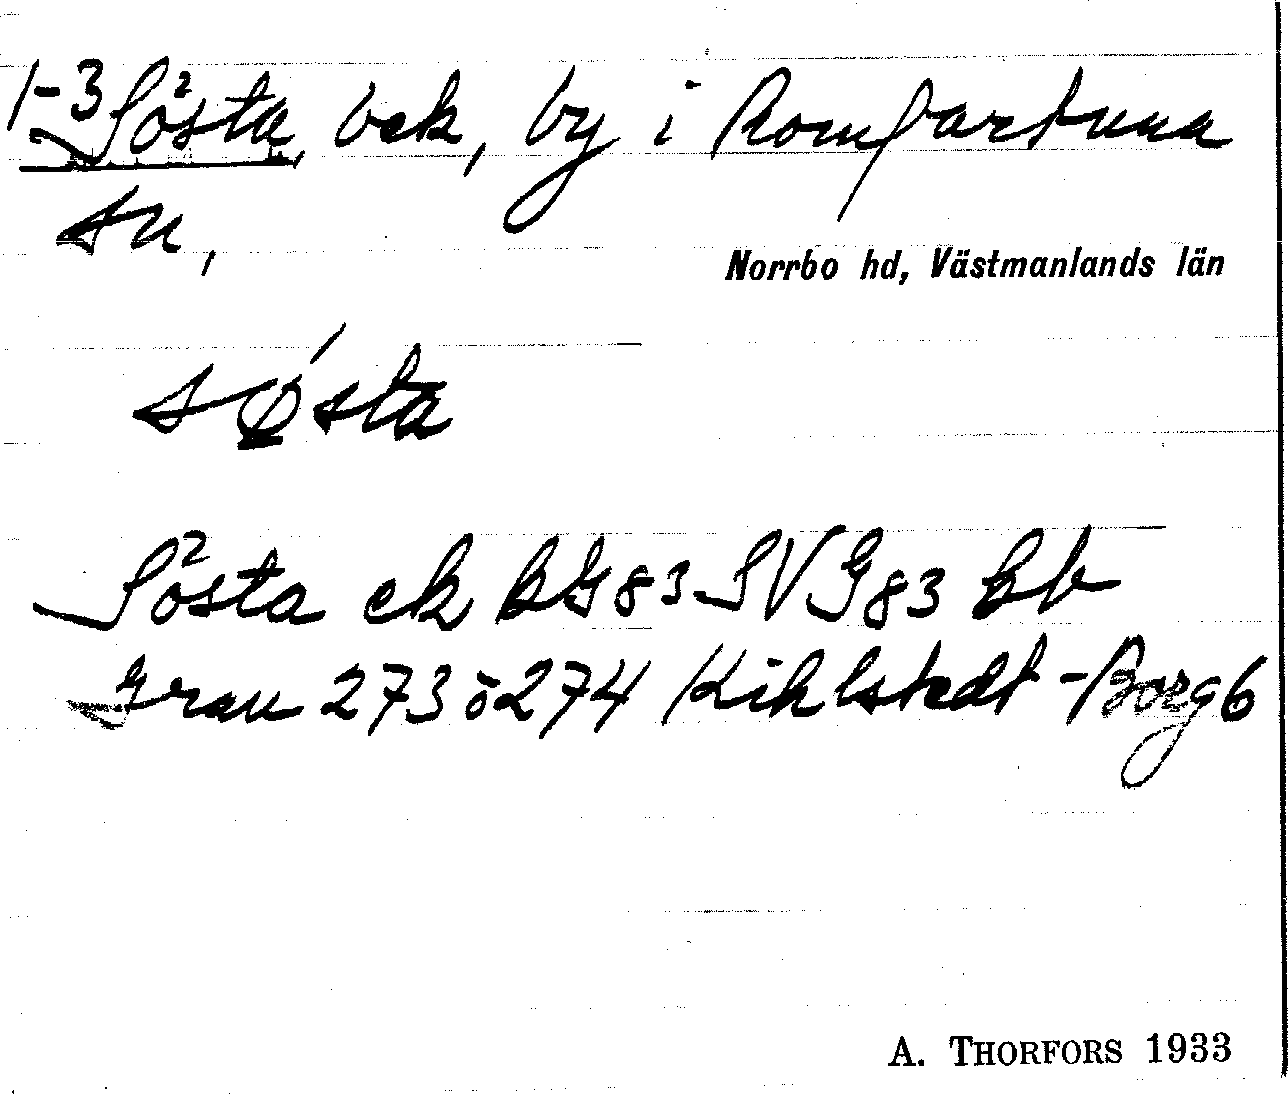 1-3 Sösta, bek, by i Romfartuna
sn,
Norrbo hd, Västmanlands län
sǿsta
Sösta ek BG83 SVG83 Bb
Grau 273 ö 274 Kihlstedt - Borg 6
A. THORFORS 1933